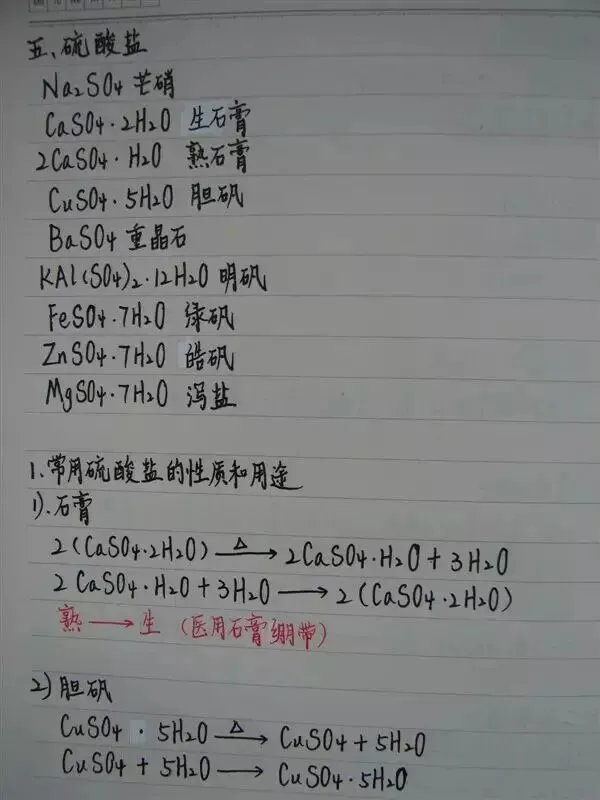 五、硫酸盐
Na₂SO₄ 芒硝
CaSO₄·2H₂O 生石膏
2CaSO₄·H₂O 熟石膏
CuSO₄·5H₂O 胆矾
BaSO₄ 重晶石
KAl(SO₄)₂·12H₂O 明矾
FeSO₄·7H₂O 绿矾
ZnSO₄·7H₂O 皓矾
MgSO₄·7H₂O 泻盐
1.常用硫酸盐的性质和用途
1).石膏
2(CaSO₄·2H₂O) —△→ 2CaSO₄·H₂O + 3H₂O
2CaSO₄·H₂O + 3H₂O ⟶ 2(CaSO₄·2H₂O)
熟 ⟶ 生 (医用石膏绷带)
2)胆矾
CuSO₄·5H₂O —△→ CuSO₄ + 5H₂O
CuSO₄ + 5H₂O ⟶ CuSO₄·5H₂O